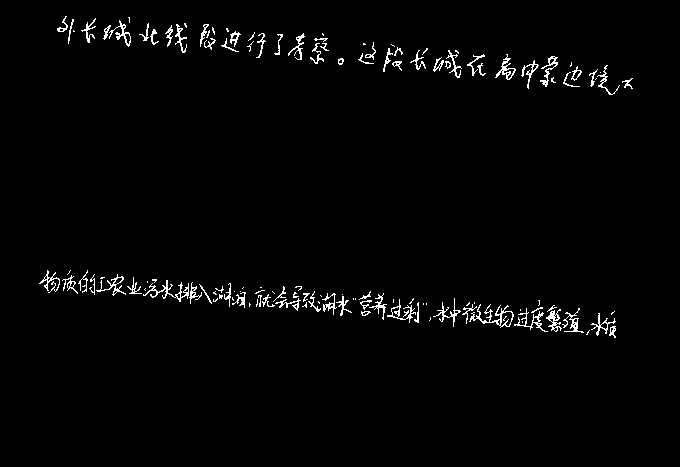 外长城北线段进行了考察。这段长城在离中蒙边境不
物质的工农业污水排入湖泊,就会导致湖水"营养过剩",水中微生物过度繁殖,水质